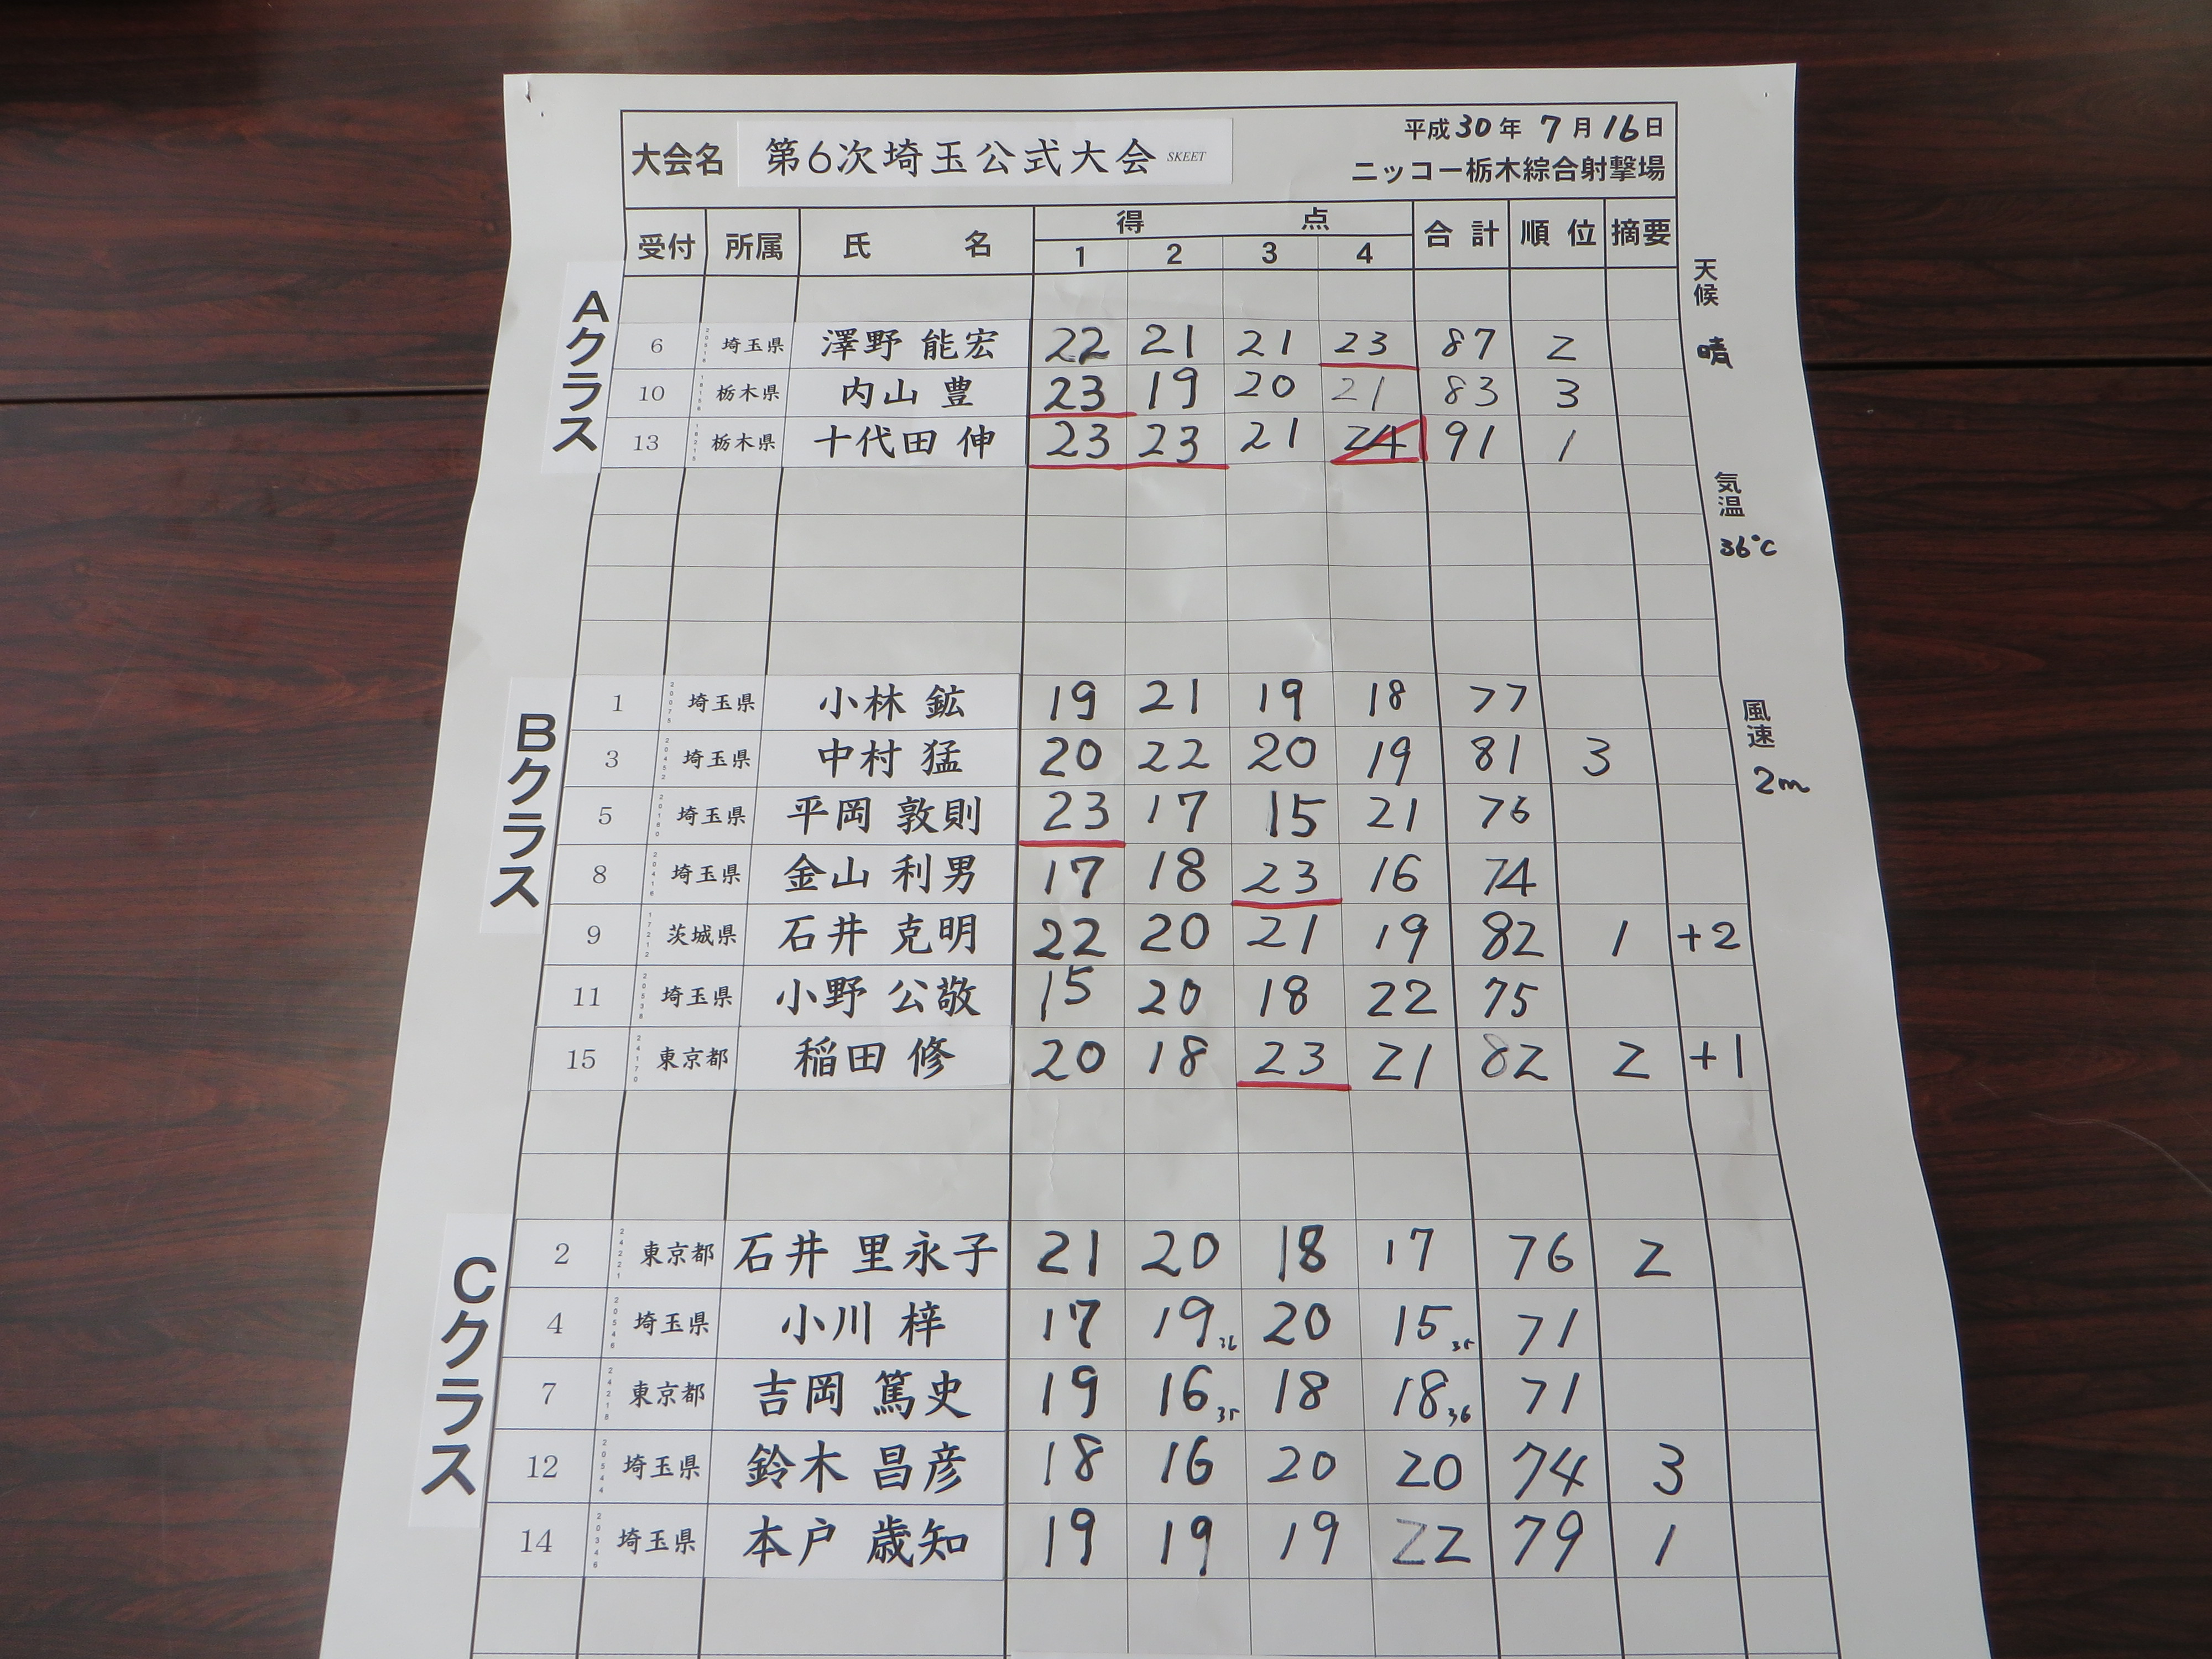 平成30年 7月16日
大会名 第6次埼玉公式大会 SKEET
ニッコー栃木綜合射撃場
受付 所属 氏名 得点 合計 順位 摘要
1 2 3 4
天候 晴
Aクラス
6 埼玉県 澤野 能宏 22 21 21 23 87 2
10 栃木県 内山 豊 23 19 20 21 83 3
13 栃木県 十代田 伸 23 23 21 24 91 1
気温 36℃
Bクラス
1 埼玉県 小林 鉱 19 21 19 18 77
3 埼玉県 中村 猛 20 22 20 19 81 3
風速 2m
5 埼玉県 平岡 敦則 23 17 15 21 76
8 埼玉県 金山 利男 17 18 23 16 74
9 茨城県 石井 克明 22 20 21 19 82 1 +2
11 埼玉県 小野 公敬 15 20 18 22 75
15 東京都 稲田 修 20 18 23 21 82 2 +1
Cクラス
2 東京都 石井 里永子 21 20 18 17 76 2
4 埼玉県 小川 梓 17 19 36 20 15 35 71
7 東京都 吉岡 篤史 19 16 35 18 18 36 71
12 埼玉県 鈴木 昌彦 18 16 20 20 74 3
14 埼玉県 本戸 歳知 19 19 19 22 79 1